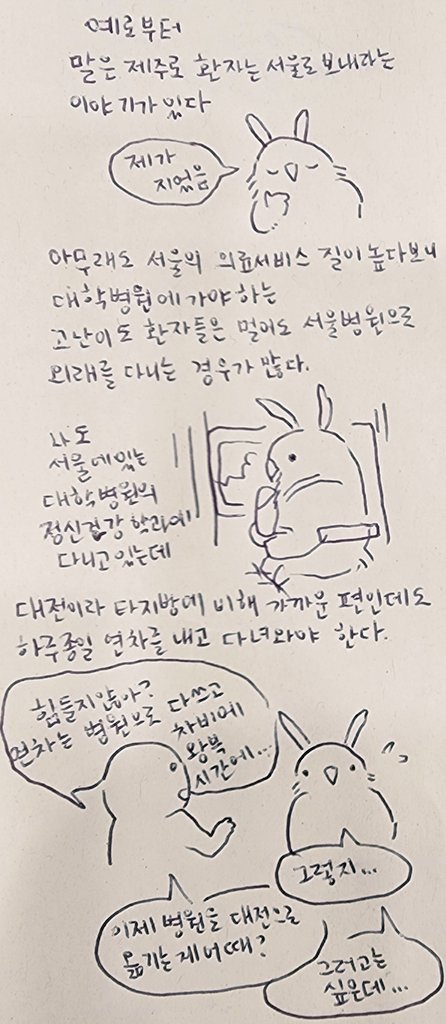 예로부터
말은 제주로 환자는 서울로 보내라는
이야기가 있다
제가
지었음
아무래도 서울의 의료서비스 질이 높다보니
대학병원에 가야 하는
고난이도 환자들은 멀어도 서울병원으로
외래를 다니는 경우가 많다.
나도
서울에있는
대학병원의
정신건강학과에
다니고있는데
대전이라 타지방에 비해 가까운 편인데도
하루종일 연차를 내고 다녀와야 한다.
힘들지않아?
연차는 병원으로 다쓰고
차비에
왕복
시간에...
그렇지...
이제 병원을 대전으로
옮기는 게 어때?
그러고는
싶은데...